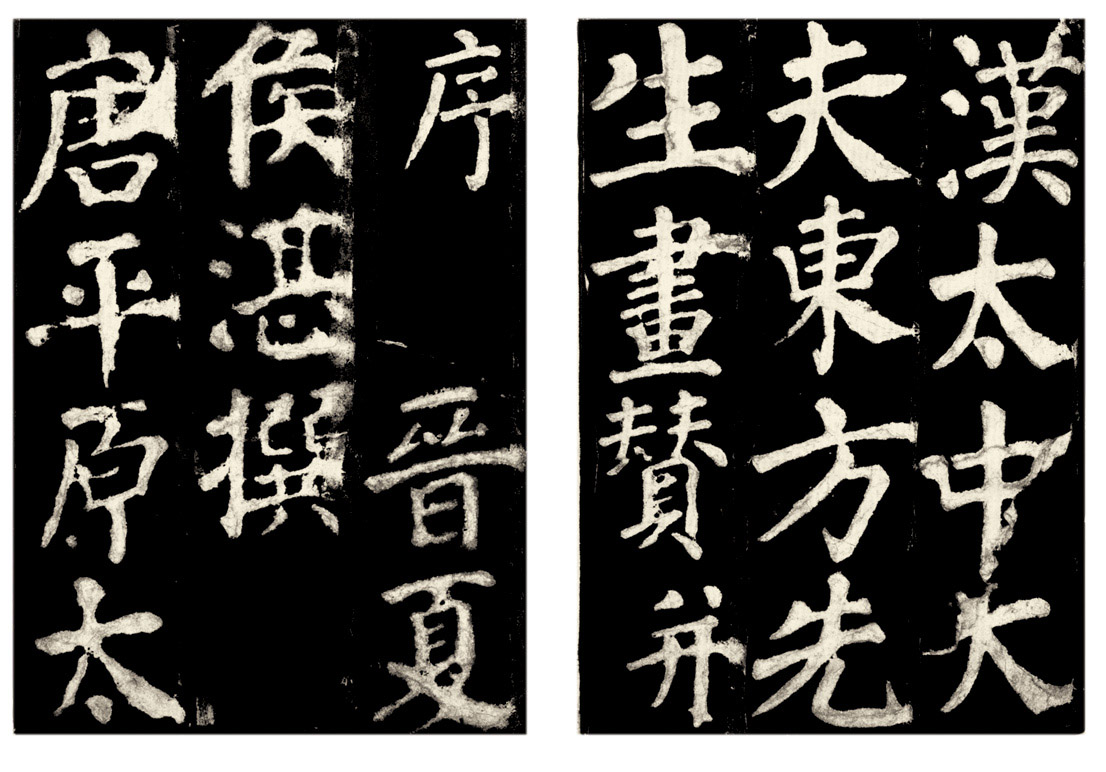 漢太中大
夫東方先
生畫賛并
序 晉夏
侯湛撰
唐平原太